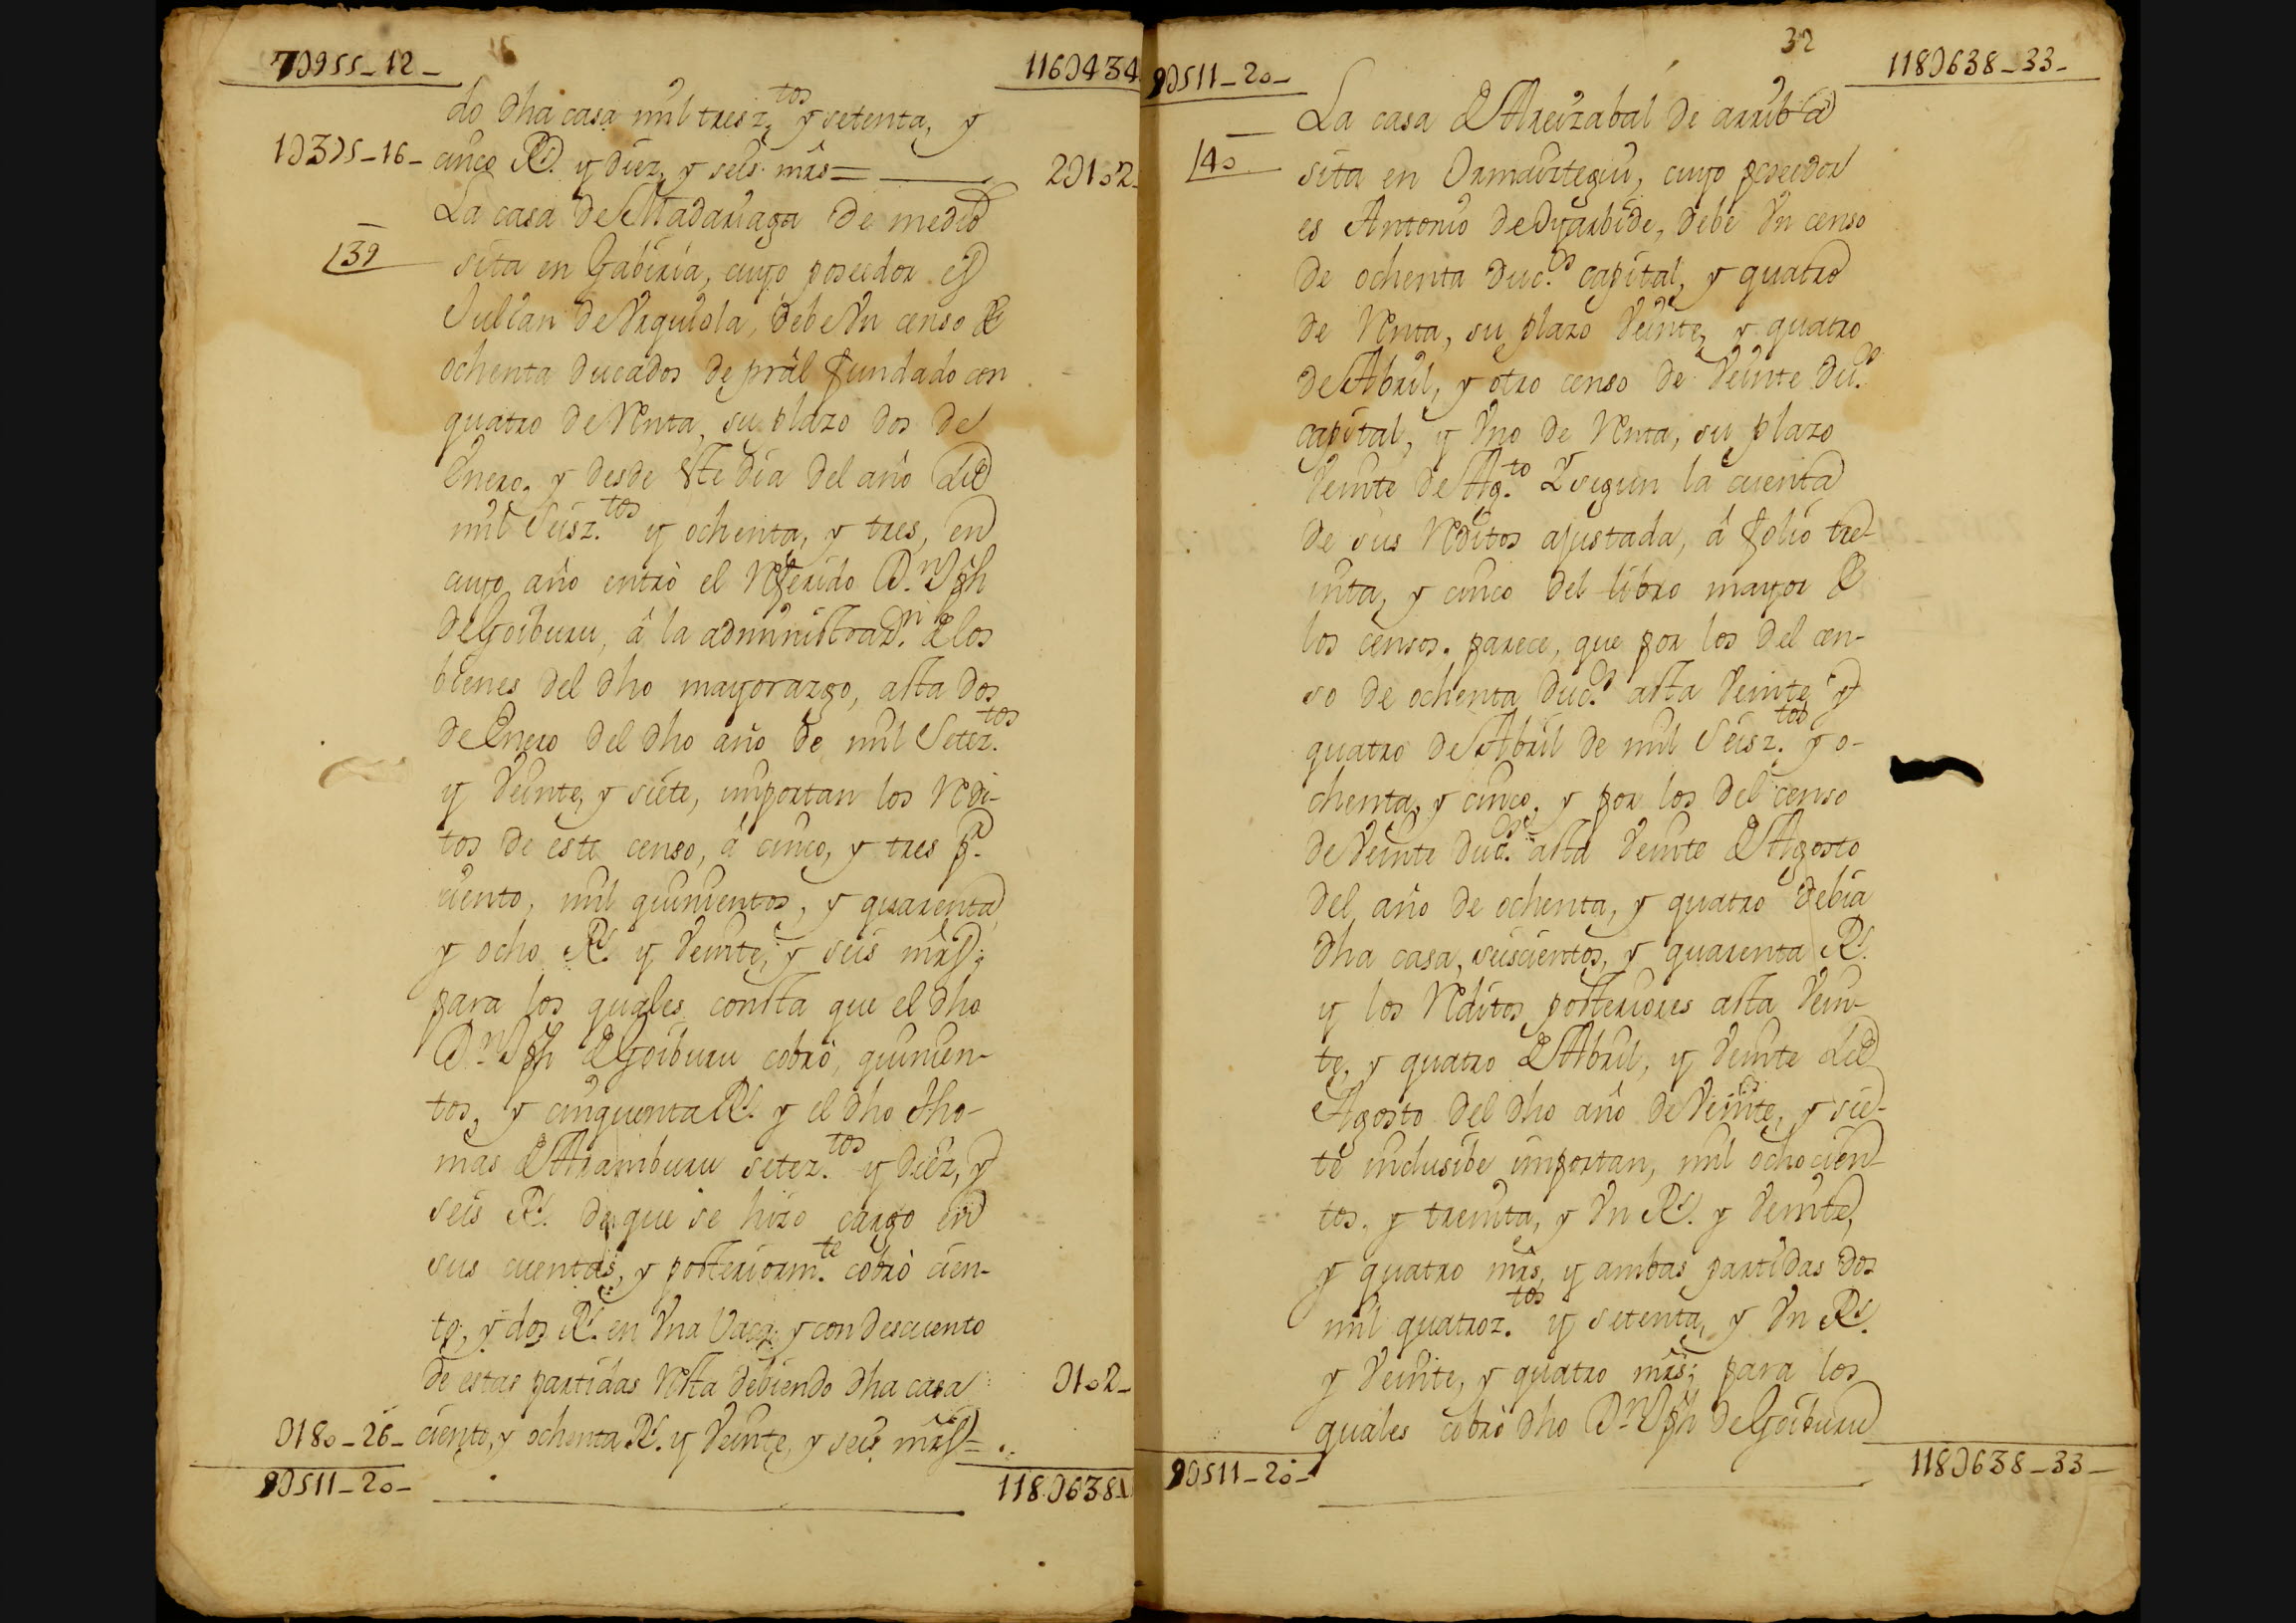 7U955_12_ 116U434
do dha casa mil tresz.tos y setenta, y
1U375_16_ cinco Rs. y diez, y seis mrs= 2U102_
La casa de Madariaga de medio
39 sita en Gabiria, cuyo poseedor es
Julian de Urquiola, debe Un censo de
ochenta ducados de prâl fundado con
quatro de Renta, su plazo dos de
Enero. y desde este dia del año de
mil Seisz.tos y ochenta, y tres, en
cuyo año entrò el Referido D.n Jph
de Goiburu, â la administraz.n de los
bienes del dho mayorazgo, asta dos
de Enero del dho año de mil Setez.tos
y Veinte, y siete, importan los Redi-
tos de este censo, â cinco, y tres p.
ciento, mil quinientos, y quarenta
y ocho Rs. y Veinte, y seis mrs;
para los quales consta que el dho
D.n Jph de Goiburu cobrò, quinien-
tos, y cinquenta Rs. y el dho Tho-
mas de Aramburu setez.tos y diez, y
seis Rs. de que se hizo cargo en
sus cuentas, y posteriorm.te cobrò cien-
to, y dos Rs. en Una Vaca; y con descuento
de estas partidas Resta debiendo dha casa U102_
U180_26_ ciento, y ochenta Rs. y Veinte, y seis mrs=
9U511_20_ 118U638
32
9U511_20_ 118U638_33_
La casa de Areizabal de arriba
40 sita en Ormaiztegui, cuyo poseedor
es Antonio de Oyarbide, debe Un censo
de ochenta duc.os capital, y quatro
de Renta, su plazo Veinte, y quatro
de Abril, y otro censo de Veinte du.os
capital, y Uno de Renta, su plazo
Veinte de Ag.to Y segun la cuenta
de sus Reditos ajustada, â folio tre-
inta, y cinco del libro mayor de
los censos. parece, que por los del cen-
so de ochenta duc.os asta Veinte y
quatro de Abril de mil Seisz.tos y o-
chenta, y cinco. y por los del censo
de Veinte duc.os asta Veinte de Agosto
del año de ochenta, y quatro debia
dha casa, seiscientos, y quarenta Rs.
y los Reditos posteriores asta Vein-
te, y quatro de Abril, y Veinte de
Agosto del dho año de Veinte, y sie-
te inclusibe importan, mil ochocien-
tos, y treinta, y Un Rs. y Veinte,
y quatro mrs, y ambas partidas dos
mil quatroz.tos y setenta, y Un Rs.
y Veinte, y quatro mrs; para los
quales cobrò dho D.n Jph de Goiburu
9U511_20_ 118U638_33_